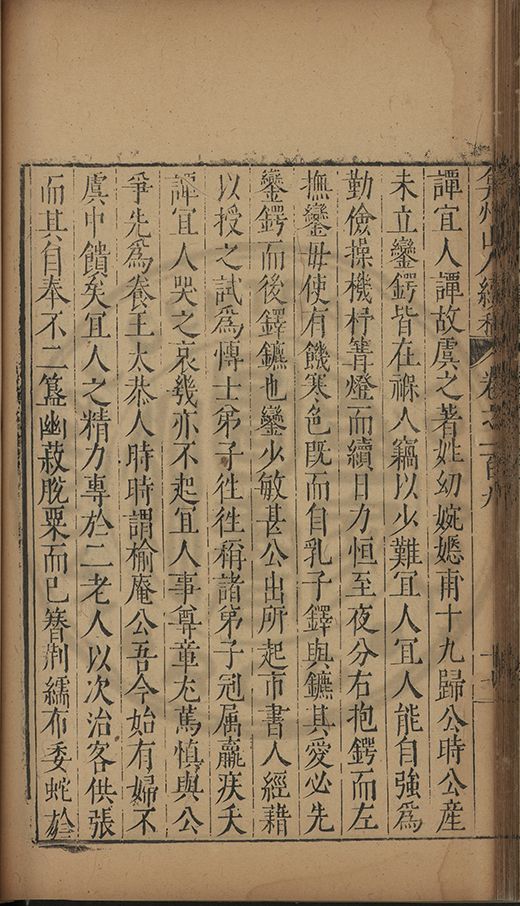 弇州山人續稿 卷之一百九
譚宜人譚故虞之著姓幼婉嫕甫十九歸公時公產
未立鑾鍔皆在褓人竊以少難宜人宜人能自強為
勤儉操機杼篝燈而續日力恒至夜分右抱鍔而左
撫鑾毋使有饑寒色既而自乳子鐸與鑣其愛必先
鑾鍔而後鐸鑣也鑾少敏甚公出所起市書人經藉
以授之試為博士弟子徃徃稱諸弟子冠属羸疾夭
譚宜人哭之哀幾亦不起宜人事尊童尤篤慎與公
爭先為養王太恭人時時謂榆庵公吾今始有婦不
虞中饋矣宜人之精力專於二老人以次治客供張
而其自奉不二簋幽菽脫粟而已簪荆繻布委蛇於